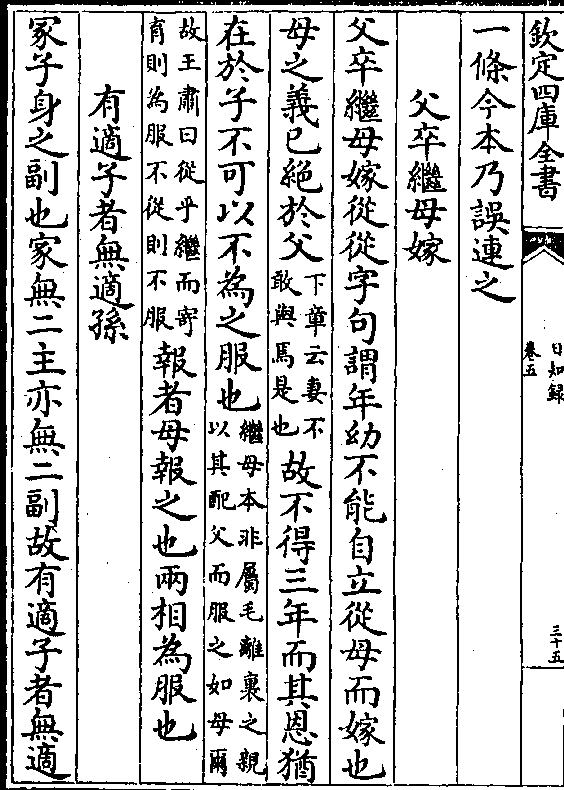 欽定四庫全書
日知錄
卷五
三十五
一條今本乃誤連之
父卒繼母嫁
父卒繼母嫁從從字句謂年幼不能自立從母而嫁也
母之義已絕於父下章云妻不敢與焉是也故不得三年而其恩猶
在於子不可以不為之服也繼母本非屬毛離裏之親以其配父而服之如母爾
故王肅曰從乎繼而寄育則為服不從則不服報者母報之也兩相為服也
有適子者無適孫
冢子身之副也家無二主亦無二副故有適子者無適